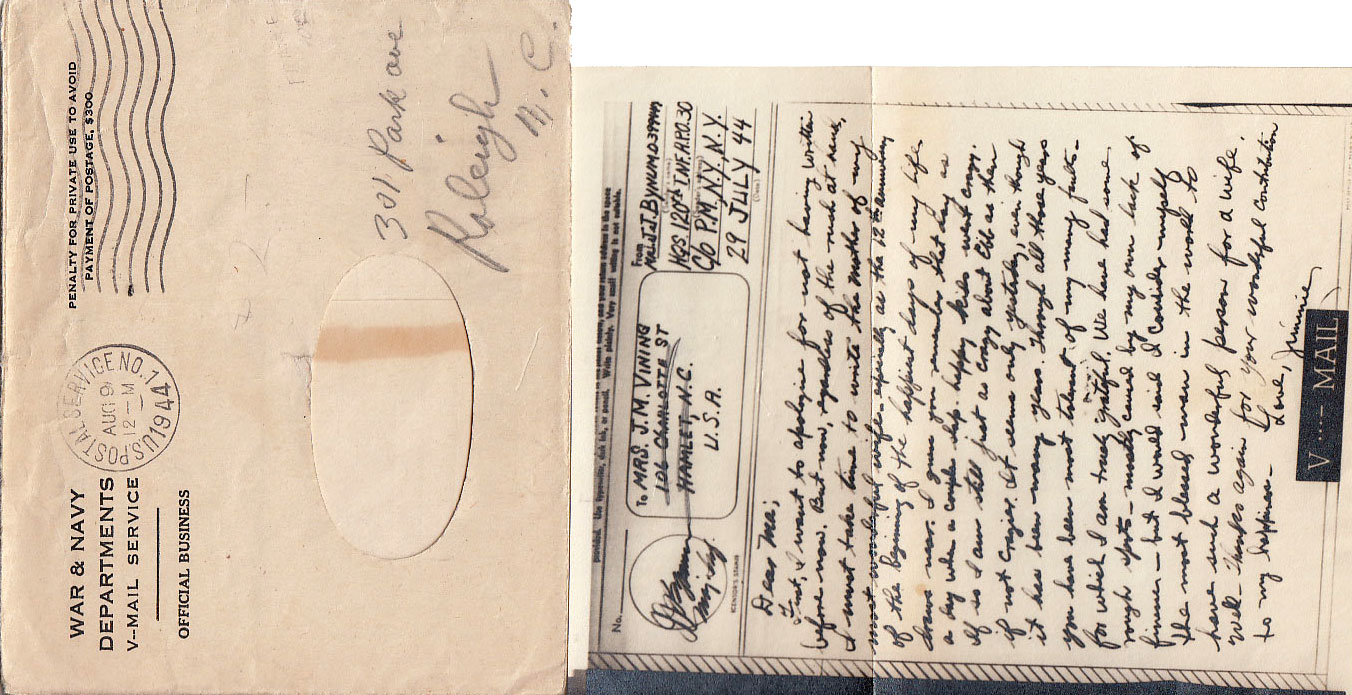 WAR & NAVY
DEPARTMENTS
V-MAIL SERVICE
OFFICIAL BUSINESS
U.S. POSTAL SERVICE NO. 11
AUG 9
12-M
1944
PENALTY FOR PRIVATE USE TO AVOID
PAYMENT OF POSTAGE, $300
301 Park ave
Raleigh
N.C.
provided. Use typewriter, dark ink, or pencil. Write plainly. Very small writing is not suitable.
No.
CENSOR'S STAMP
To MRS. J.M. VINING
106 CHARLOTTE ST
HAMLET, N.C.
U.S.A.
From
MAJ. J.T. BYNUM
HQS 120th INF. A.P.O. 30
C/O P.M., N.Y., N.Y.
29 JULY 44
Dear Ma;
First, I want to apologize for not having written
before now. But now, regardless of the much at hand,
I must take time to write the mother of my
most wonderful wife - especially as the 12th anniversary
of the beginning of the happiest days of my life
draws near. I guess you remember that day as
a day when a couple of happy kids went crazy.
If so I am still just as crazy about Ebb as then
if not crazier. It seems only yesterday, even though
it has been many years. Through all those years
you have been most tolerant of my many faults -
for which I am truly grateful. We have had some
rough spots - mostly caused by my own lack of
finesse - but I would and I consider myself
the most blessed man in the world to
have such a wonderful person for a wife.
Well - Thanks again for your wonderful contribution
to my happiness.
Love,
Jimmie
V ···- MAIL